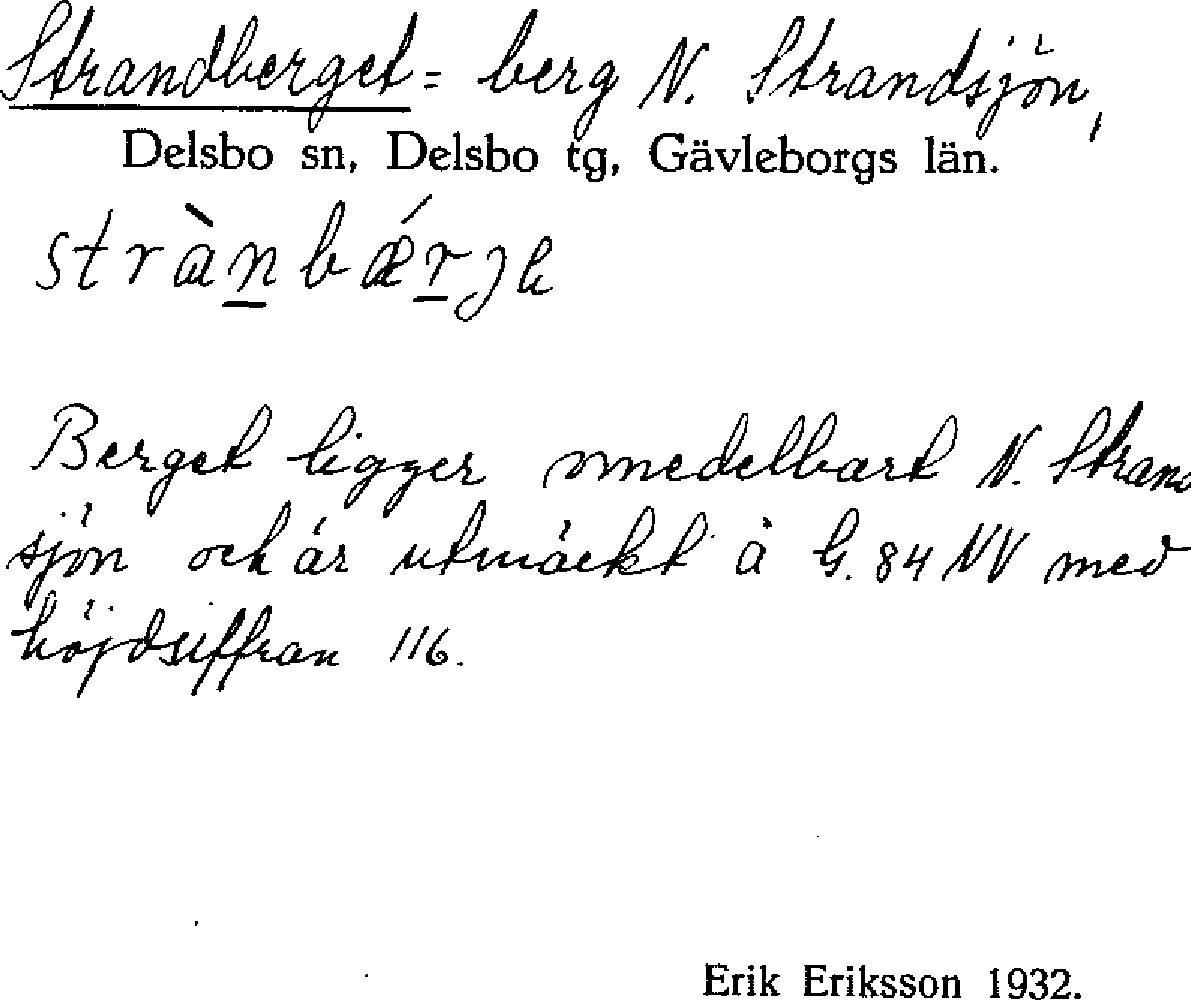 Strandberget = berg N. Strandsjön,
Delsbo sn, Delsbo tg, Gävleborgs län.
stràn̲bǽr̲je
Berget ligger omedelbart N. Strand
sjön och är utmäckt å G. 84 NV med
höjdsiffran 116.
Erik Eriksson 1932.